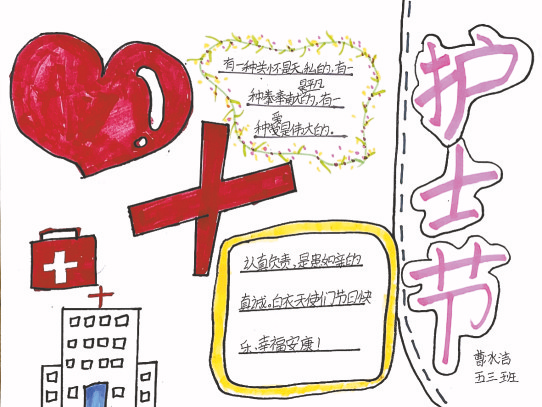 护士节
有一种关怀是无私的,有一
是平凡
种奉献的,有一
爱
种爱是伟大的。
认真负责,是患如亲的
真诚。白衣天使们节日快
乐,幸福安康!
曹水洁
五三班